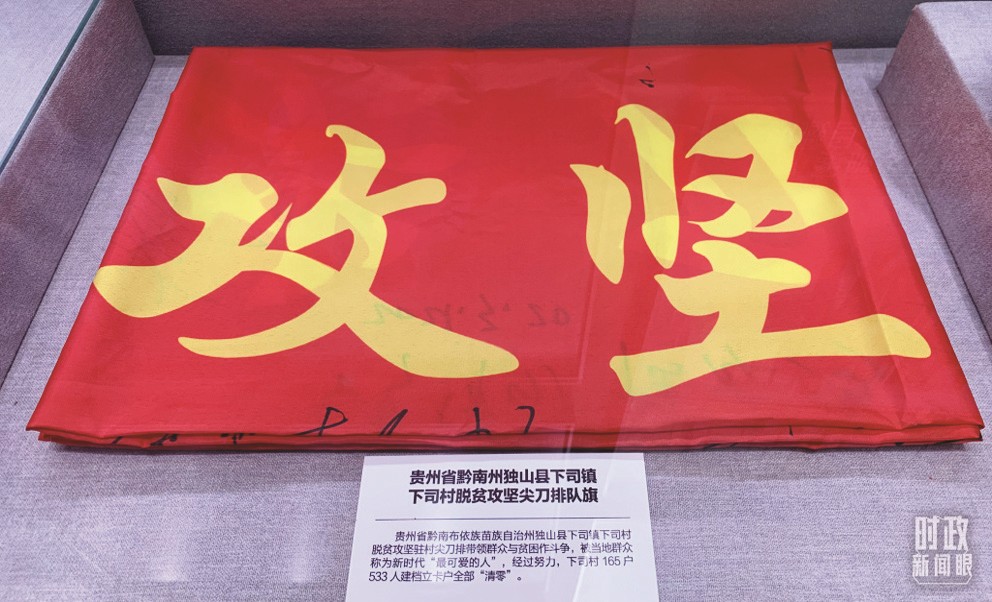 攻坚
贵州省黔南州独山县下司镇
下司村脱贫攻坚尖刀排队旗
贵州省黔南布依族苗族自治州独山县下司镇下司村
脱贫攻坚驻村尖刀排带领群众与贫困作斗争，被当地群众
称为新时代“最可爱的人”，经过努力，下司村 165 户
533 人建档立卡户全部“清零”。
时政
新闻眼